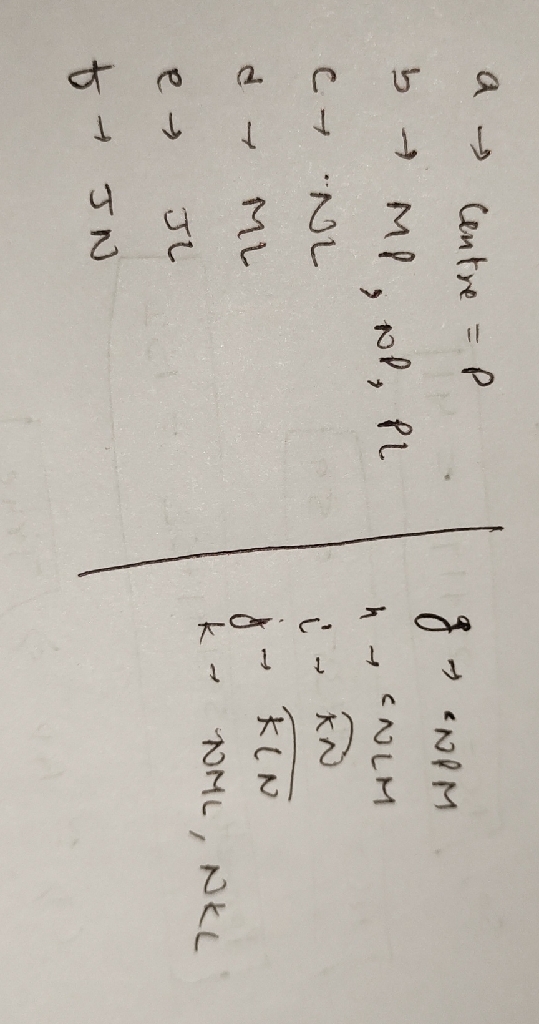 a → Centre = P
b → MP, NP, PL
c → NL
d → ML
e → JL
f → JN
g → ∠NPM
h → ∠NLM
i → KN
j → KLN
k → NML, NKL